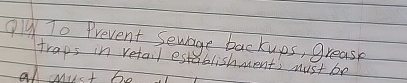 Q19 To Prevent Sewage backups, grease
traps in retail establishment, must be
a) must be